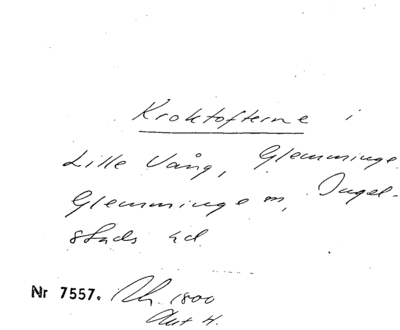 Kroktofterne i
Lille Vång, Glemminge,
Glemminge sn, Ingel-
stads hd
Nr 7557. 1800